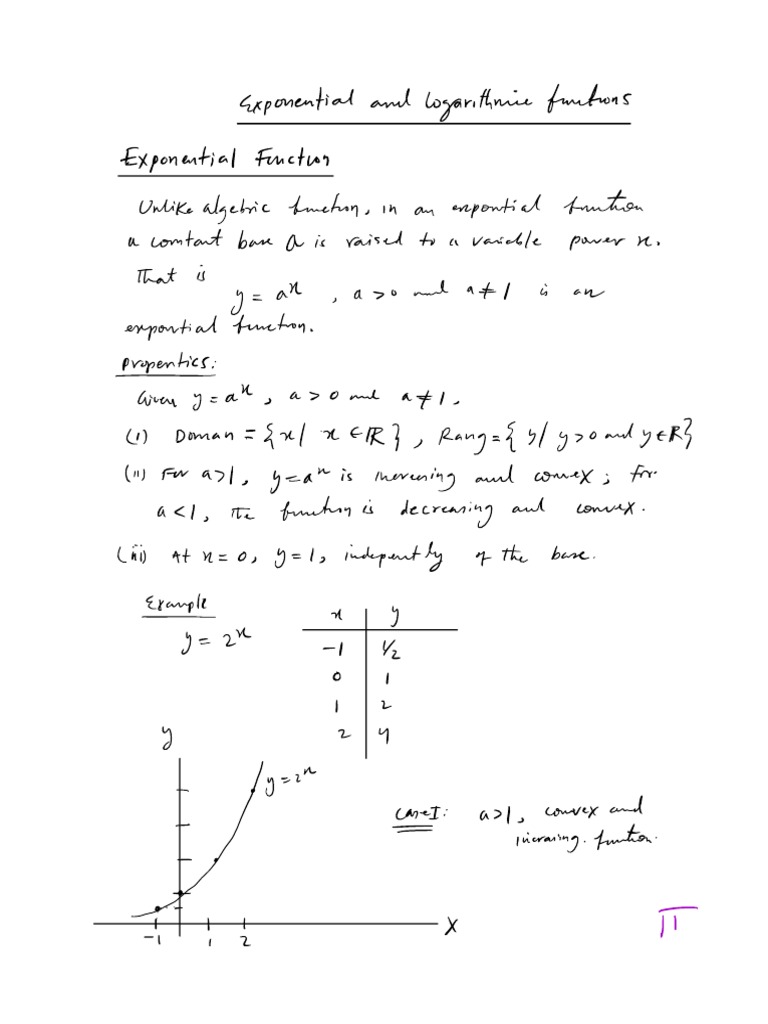 Exponential and logarithmic functions
Exponential Function
Unlike algebric function, in an expontial function
a constant base a is raised to a variable power x.
That is
y = aˣ , a > 0 and a ≠ 1 is an
expontial function.
Properties:
Given y = aˣ, a > 0 and a ≠ 1.
(i) Doman = {x / x ∈ ℝ}, Rang = {y / y > 0 and y ∈ ℝ}
(ii) For a > 1, y = aˣ is increasing and convex ; for
a < 1, the function is decreasing and convex.
(iii) At x = 0, y = 1, indepently of the base.
Example
y = 2ˣ
x y
-1 1/2
0 1
1 2
2 4
y
y = 2ˣ
Case I: a > 1, convex and
incrasing. function.
-1 1 2 X